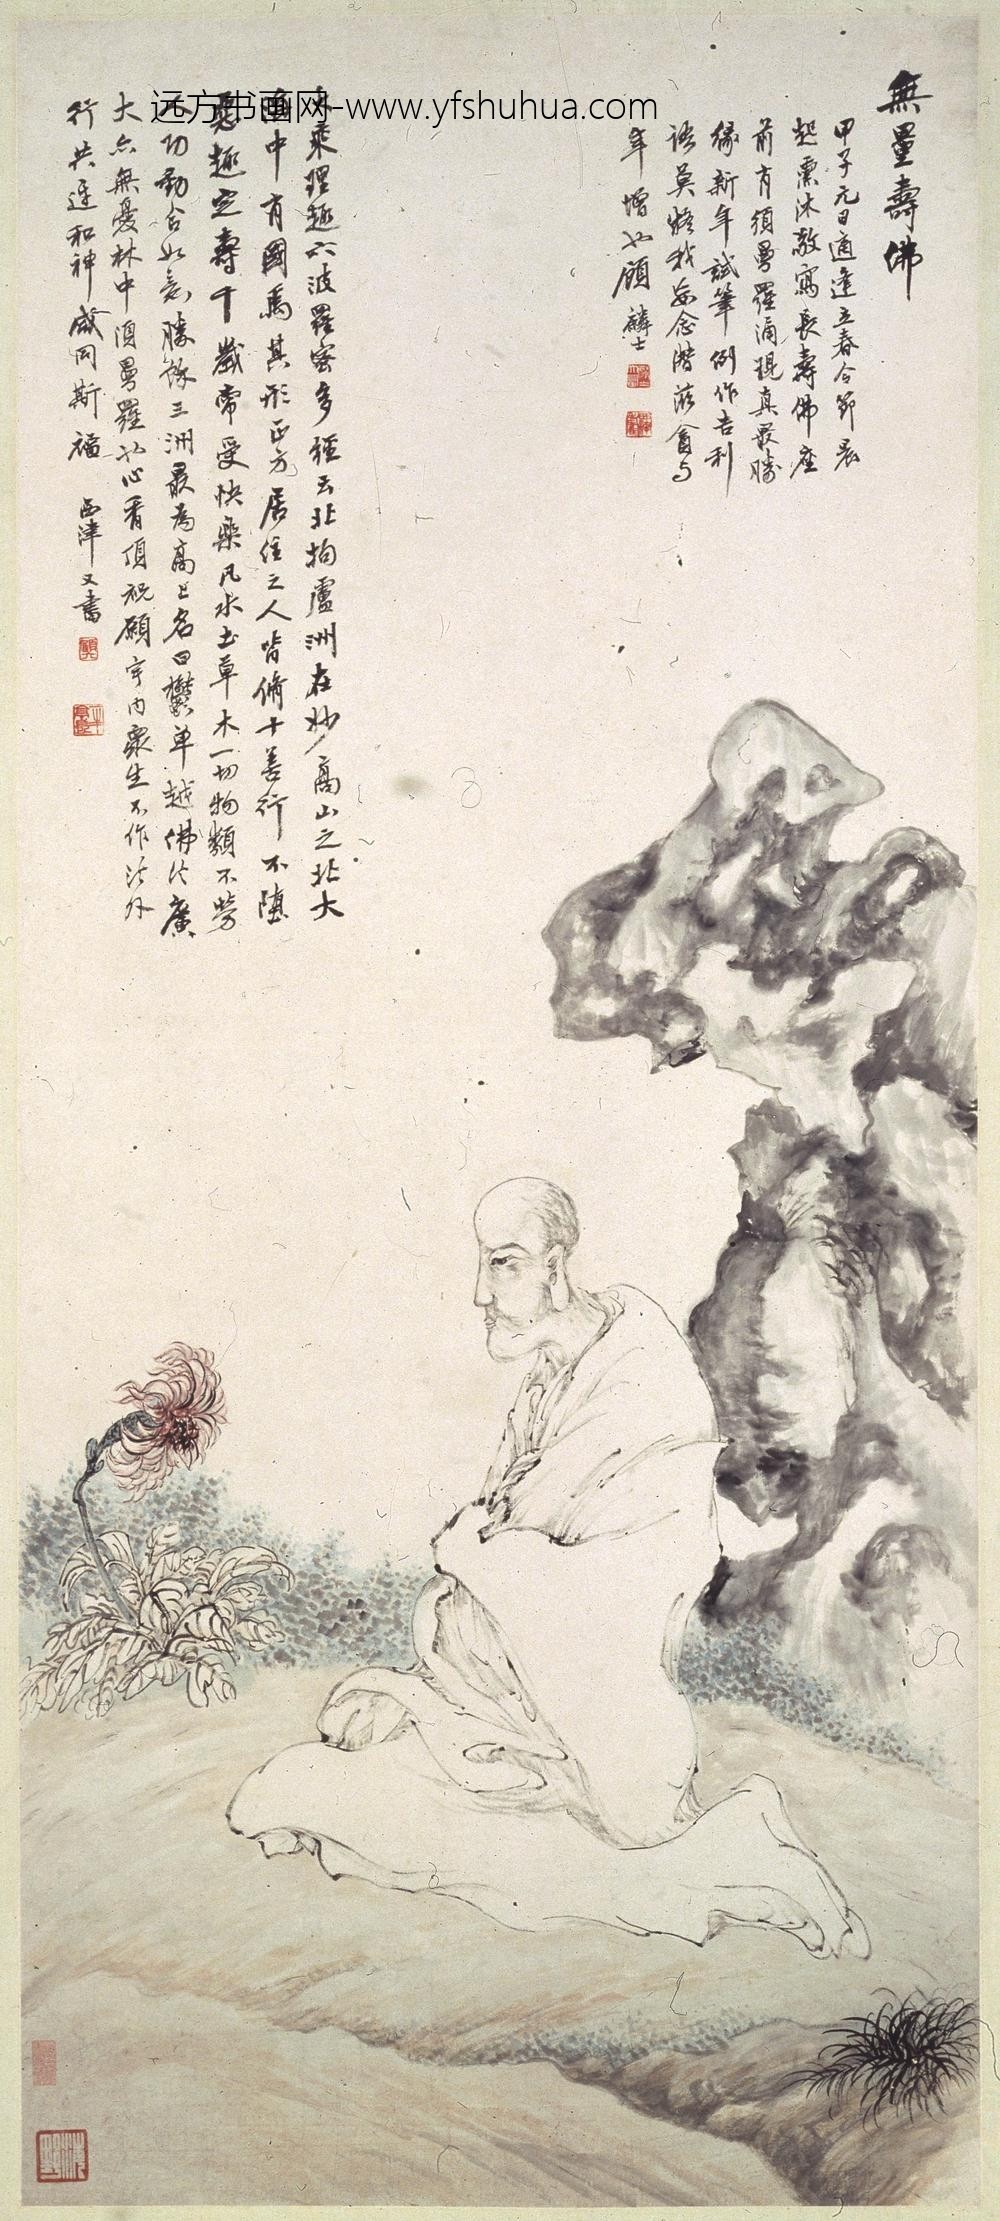 远方书画网-www.yfshuhua.com
無量壽佛
甲子元日適逢立春令節晨
起熏沐敬寫長壽佛座
前有須曼羅涌現真最勝
緣新年試筆例作吉利
語莫怪我妄念潛滋貪与
年增也顧麟士
大乘理趣六波羅蜜多經云北拘盧洲在妙高山之北大
海中有國焉其形正方居住之人皆脩十善行不墮
惡趣定壽千歲常受快樂凡水土草木一切物類不勞
人功動合如意勝餘三洲最為高上名曰鬱單越佛法廣
大亦無憂林中須曼羅也心香頂祝願宇內衆生不作法外
行共迓和神咸同斯福 西津又書